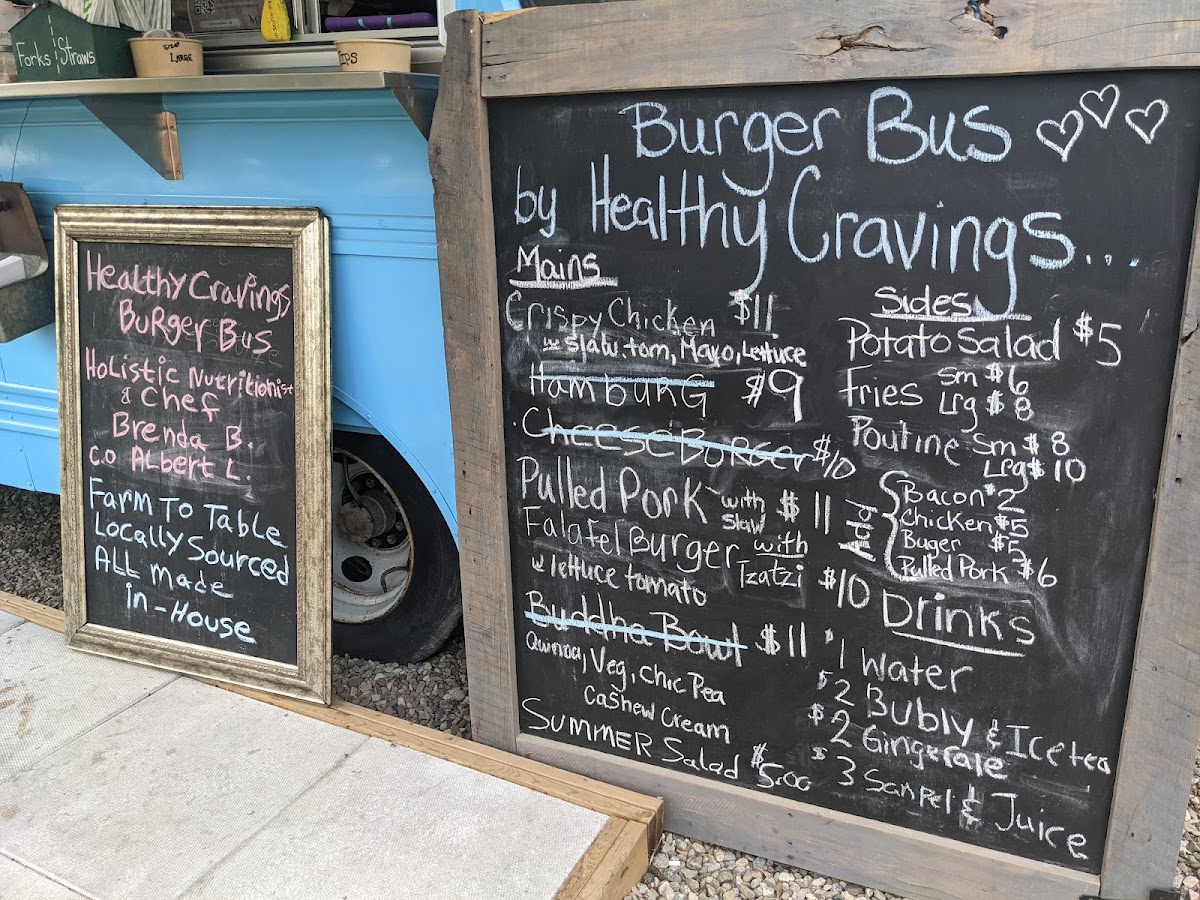 Forks Straws
LARGE
Healthy Cravings
Burger Bus
Holistic Nutritionist
& Chef
Brenda B.
C.O Albert L.
Farm To Table
Locally Sourced
ALL Made
in-House
Burger Bus
by Healthy Cravings...
Mains
Crispy Chicken $11
w slaw, tom, Mayo, Lettuce
HamburG $9
CheeseBurger $10
Pulled Pork with slaw $11
Falafel Burger with Tzatzi
w lettuce tomato $10
Buddha Bowl $11
Quinoa, Veg, chic Pea
Cashew Cream
SUMMER Salad $5.00
Sides
Potato Salad $5
Fries sm $6
Lrg $8
Poutine sm $8
Lrg $10
Add
Bacon $2
Chicken $5
Buger $5
Pulled Pork $6
Drinks
$1 Water
$2 Bubly & Ice tea
$2 Gingerale
$3 Sanpel & Juice